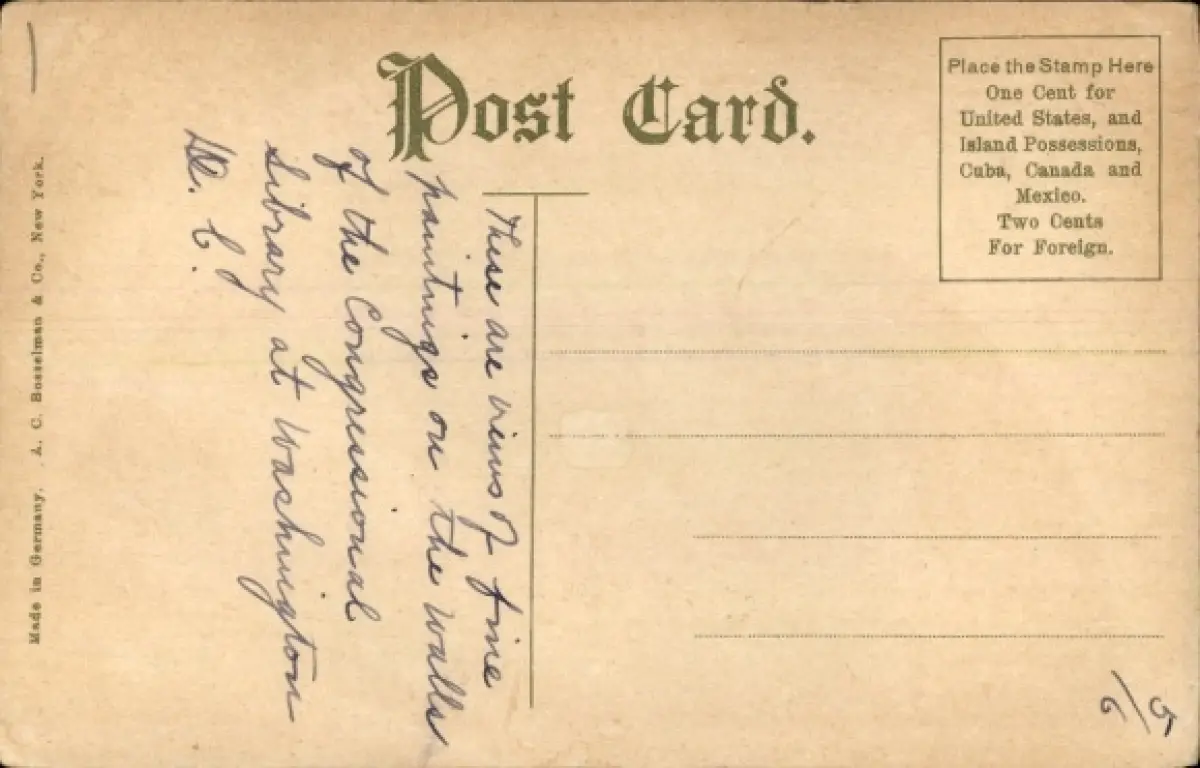 Post Card.
Place the Stamp Here
One Cent for
United States, and
Island Possessions,
Cuba, Canada and
Mexico.
Two Cents
For Foreign.
These are views of fine
paintings on the walls
of the Congressional
Library at Washington
D. C.
Made in Germany. A. C. Bosselman & Co., New York.
5/6